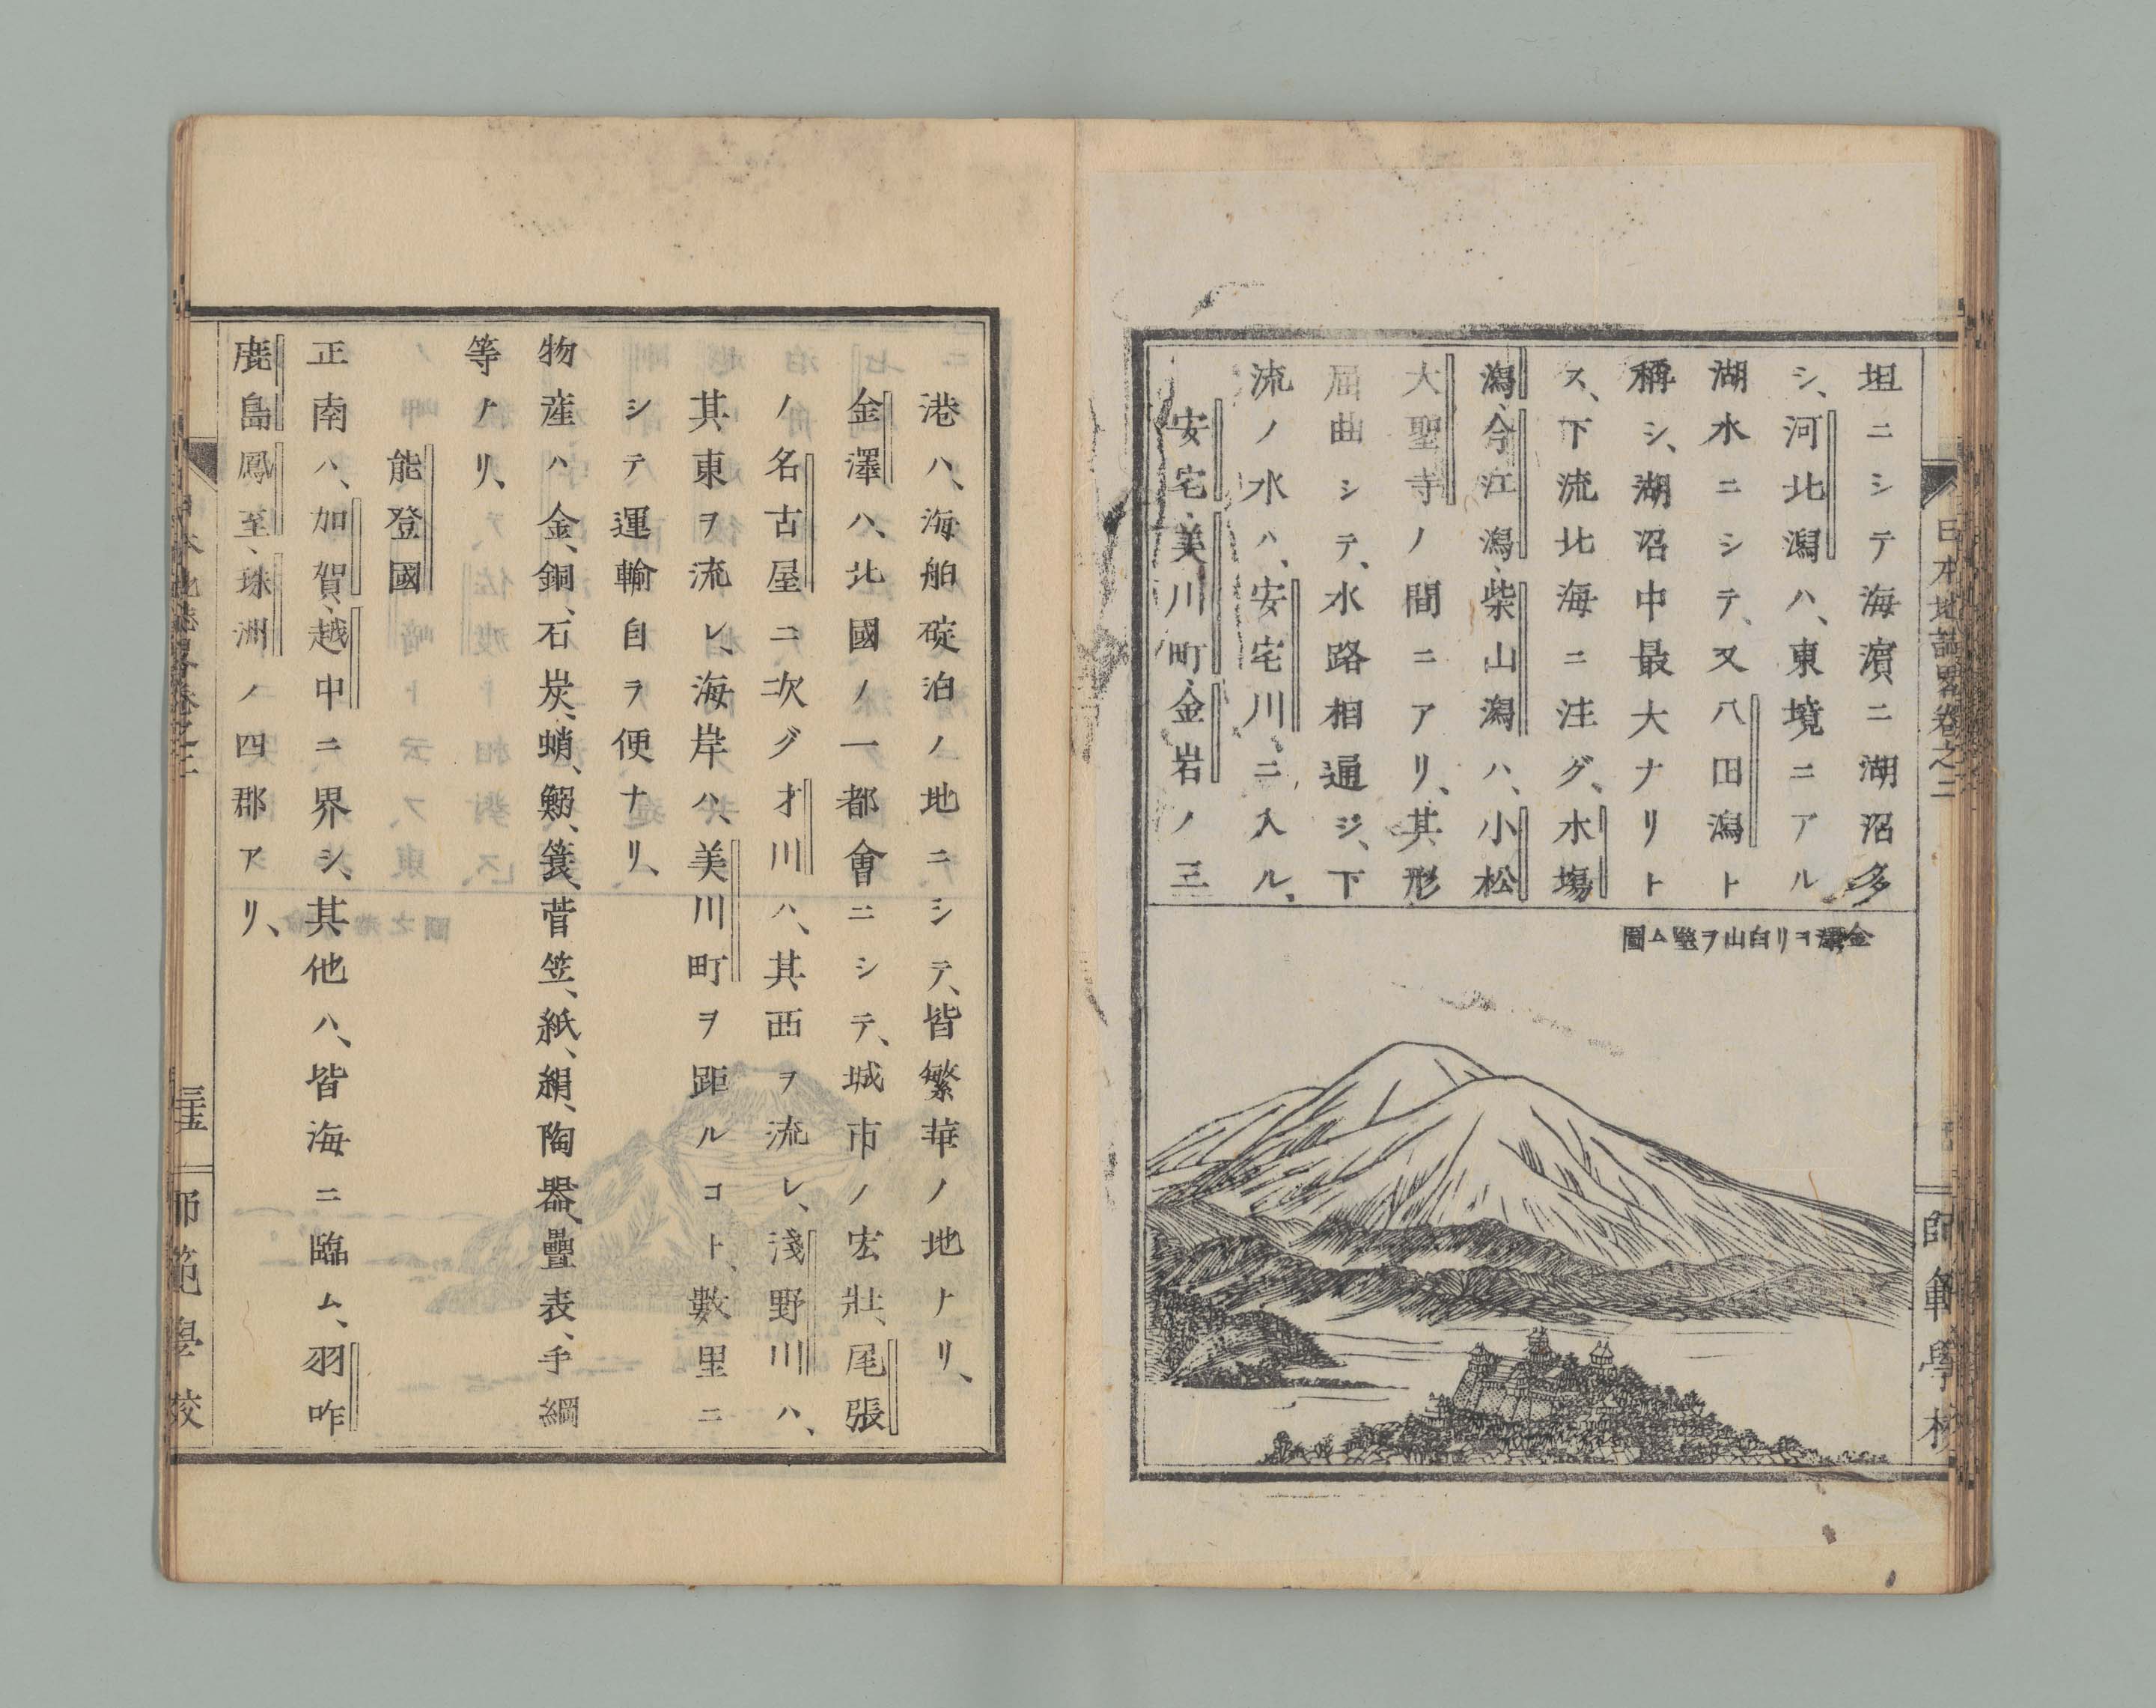 坦ニシテ海濱ニ湖沼多
シ、河北潟ハ、東境ニアル
湖水ニシテ、又八田潟ト
稱シ、湖沼中最大ナリト
ス、下流北海ニ注グ、木塲
潟、今江潟、柴山潟ハ、小松
大聖寺ノ間ニアリ、其形
屈曲シテ、水路相通ジ、下
流ノ水ハ、安宅川、ニ入ル、
安宅、美川町、金岩ノ三
金澤ヨリ白山ヲ望ム圖
日本地誌畧卷之二
師範學校
港ハ、海舶碇泊ノ地ニシテ、皆繁華ノ地ナリ、
金澤ハ、北國ノ一都會ニシテ、城市ノ宏壯、尾張
ノ名古屋ニ次グ、才川ハ、其西ヲ流レ、淺野川ハ、
其東ヲ流レ、海岸ハ、美川町ヲ距ルコト、數里ニ
シテ運輸自ラ便ナリ、
物産ハ金、銅、石炭、蛸、鰯、簑、菅笠、紙、絹、陶器、疊表、手綱
等ナリ、
能登國
正南ハ、加賀、越中ニ界シ、其他ハ、皆海ニ臨ム、羽咋
鹿島鳳至、珠洲ノ四郡アリ、
日本地誌畧卷之二
三五
師範學校